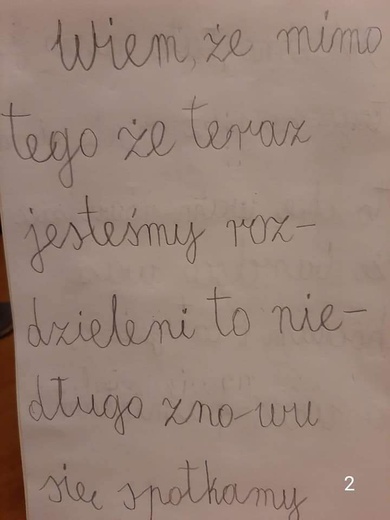 Wiem, że mimo
tego że teraz
jesteśmy roz-
dzieleni to nie-
długo znowu
się spotkamy
2